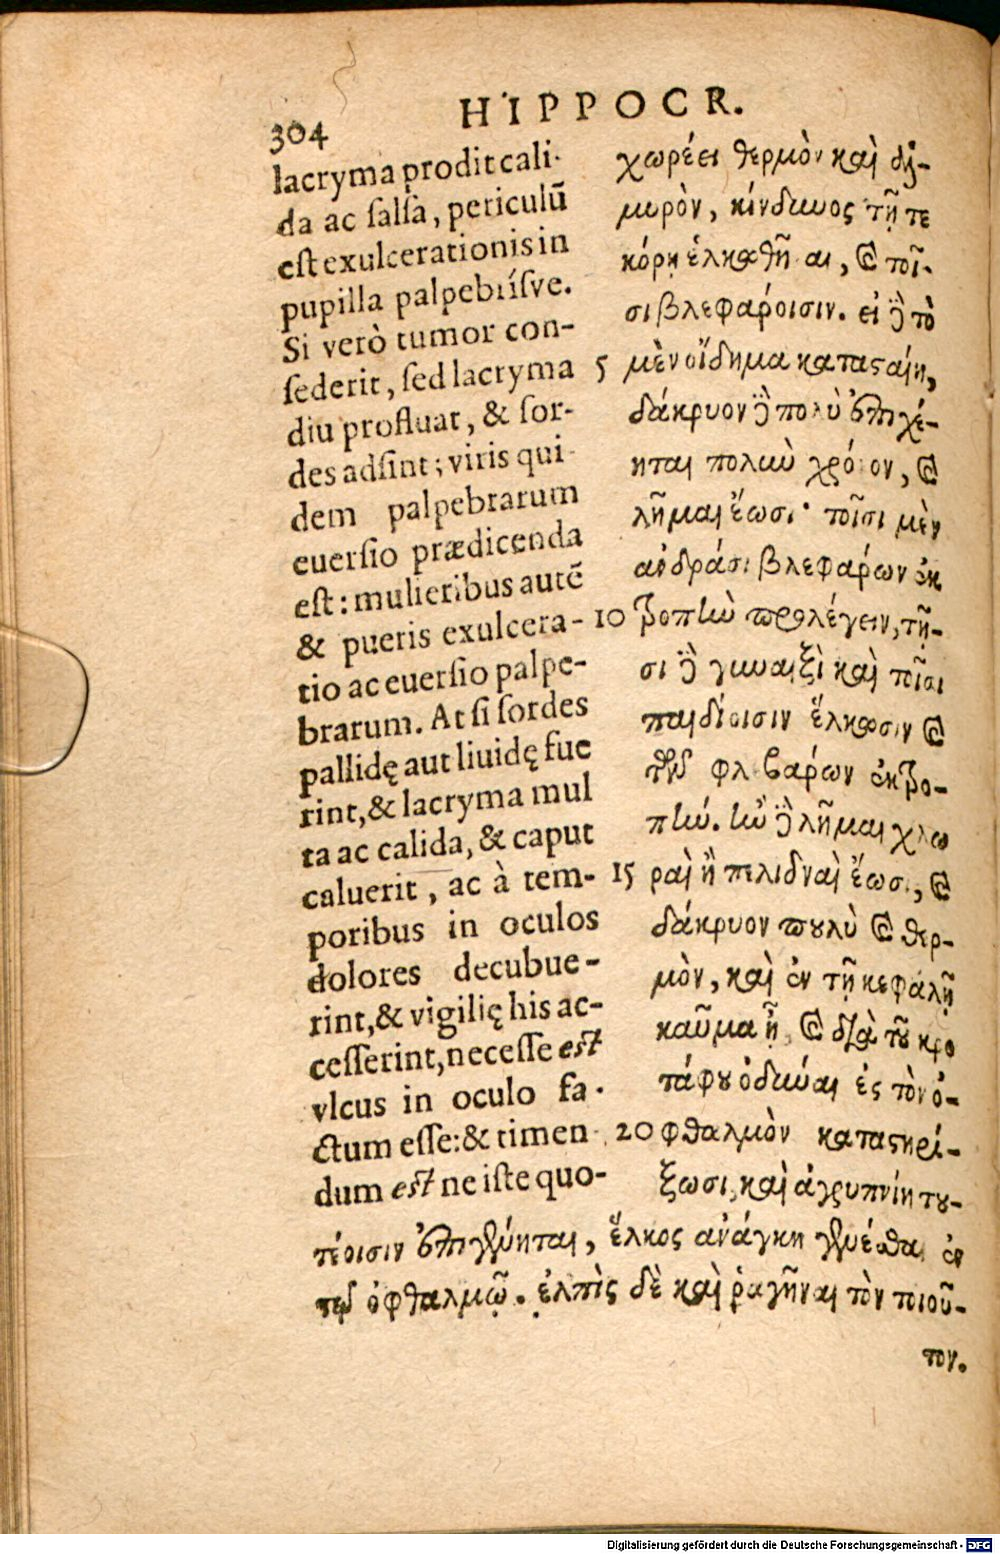 304
HIPPOCR.
lacryma prodit cali-
da ac salsa, periculū
est exulcerationis in
pupilla palpebrísve.
Si verò tumor con-
sederit, sed lacryma
diu profluat, & sor-
des adsint; viris qui-
dem palpebrarum
euersio prædicenda
est: mulieribus autē
& pueris exulcera-
tio ac euersio palpe-
brarum. At si sordes
pallidę aut liuidę fue
rint, & lacryma mul
ta ac calida, & caput
caluerit, ac à tem-
poribus in oculos
dolores decubue-
rint, & vigilię his ac-
cesserint, necesse est
vlcus in oculo fa-
ctum esse: & timen
dum est ne iste quo-
χωρέει θερμὸν καὶ ἁλ-
μυρὸν, κίνδυνος τῇ τε
κόρῃ ἑλκωθῆναι, καὶ τοῖ-
σι βλεφάροισιν. εἰ δὲ τὸ
5 μὲν οἴδημα καταςαίη,
δάκρυον δὲ πολὺ ἐπιχέ-
ηται πολὺν χρόνον, καὶ
λῆμαι ἔωσι· τοῖσι μὲν
ἀνδράσι βλεφάρων ἐκ
10 τροπὴν προλέγειν, τῇ-
σι δὲ γυναιξὶ καὶ τοῖσι
παιδίοισιν ἕλκωσιν καὶ
τῶν βλεφάρων ἐκτρο-
πήν. ἢν δὲ λῆμαι χλω
15 ραὶ ἢ πελιδναὶ ἔωσι, καὶ
δάκρυον πουλὺ καὶ θερ-
μὸν, καὶ ἐν τῇ κεφαλῇ
καῦμα ᾖ, καὶ διὰ τοῦ κρο
τάφου ὀδύναι ἐς τὸν ὀ-
20 φθαλμὸν καταςηρί-
ξωσι, καὶ ἀγρυπνίη του-
τέοισιν ἐπιγένηται, ἕλκος ἀνάγκη γενέσθαι ἐν
τῷ ὀφθαλμῷ. ἐλπὶς δὲ καὶ ῥαγῆναι τὸν τοιοῦ-
τον.
Digitalisierung gefördert durch die Deutsche Forschungsgemeinschaft - DFG